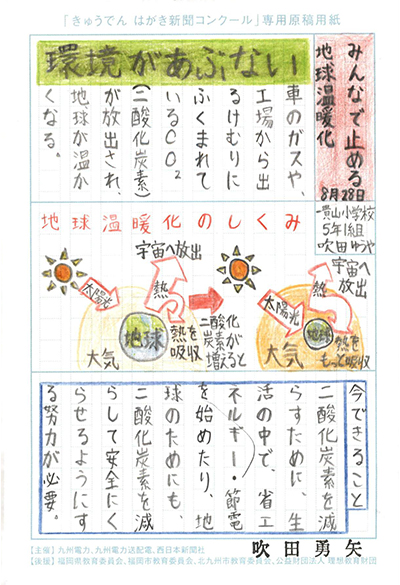 「きゅうでん はがき新聞コンクール」専用原稿用紙
みんなで止める
地球温暖化
8月28日
一貴山小学校
5年1組
吹田ゆうや
環境があぶない
車のガスや、
工場から出
るけむりに
ふくまれて
いるCO₂
(二酸化炭素)
が放出され、
地球が温か
くなる。
地球温暖化のしくみ
宇宙へ放出
太陽光
熱
地球
熱を
吸収
大気
二酸化
炭素が
増えると
宇宙へ
放出
太陽光
熱
地球
熱を
もっと吸収
大気
今できること
二酸化炭素を減
らすために、生
活の中で、省エ
ネルギー・節電
を始めたり、地
球のためにも、
二酸化炭素を減
らして安全にく
らせるようにす
る努力が必要。
吹田勇矢
【主催】九州電力、九州電力送配電、西日本新聞社
【後援】福岡県教育委員会、福岡市教育委員会、北九州市教育委員会、公益財団法人 理想教育財団